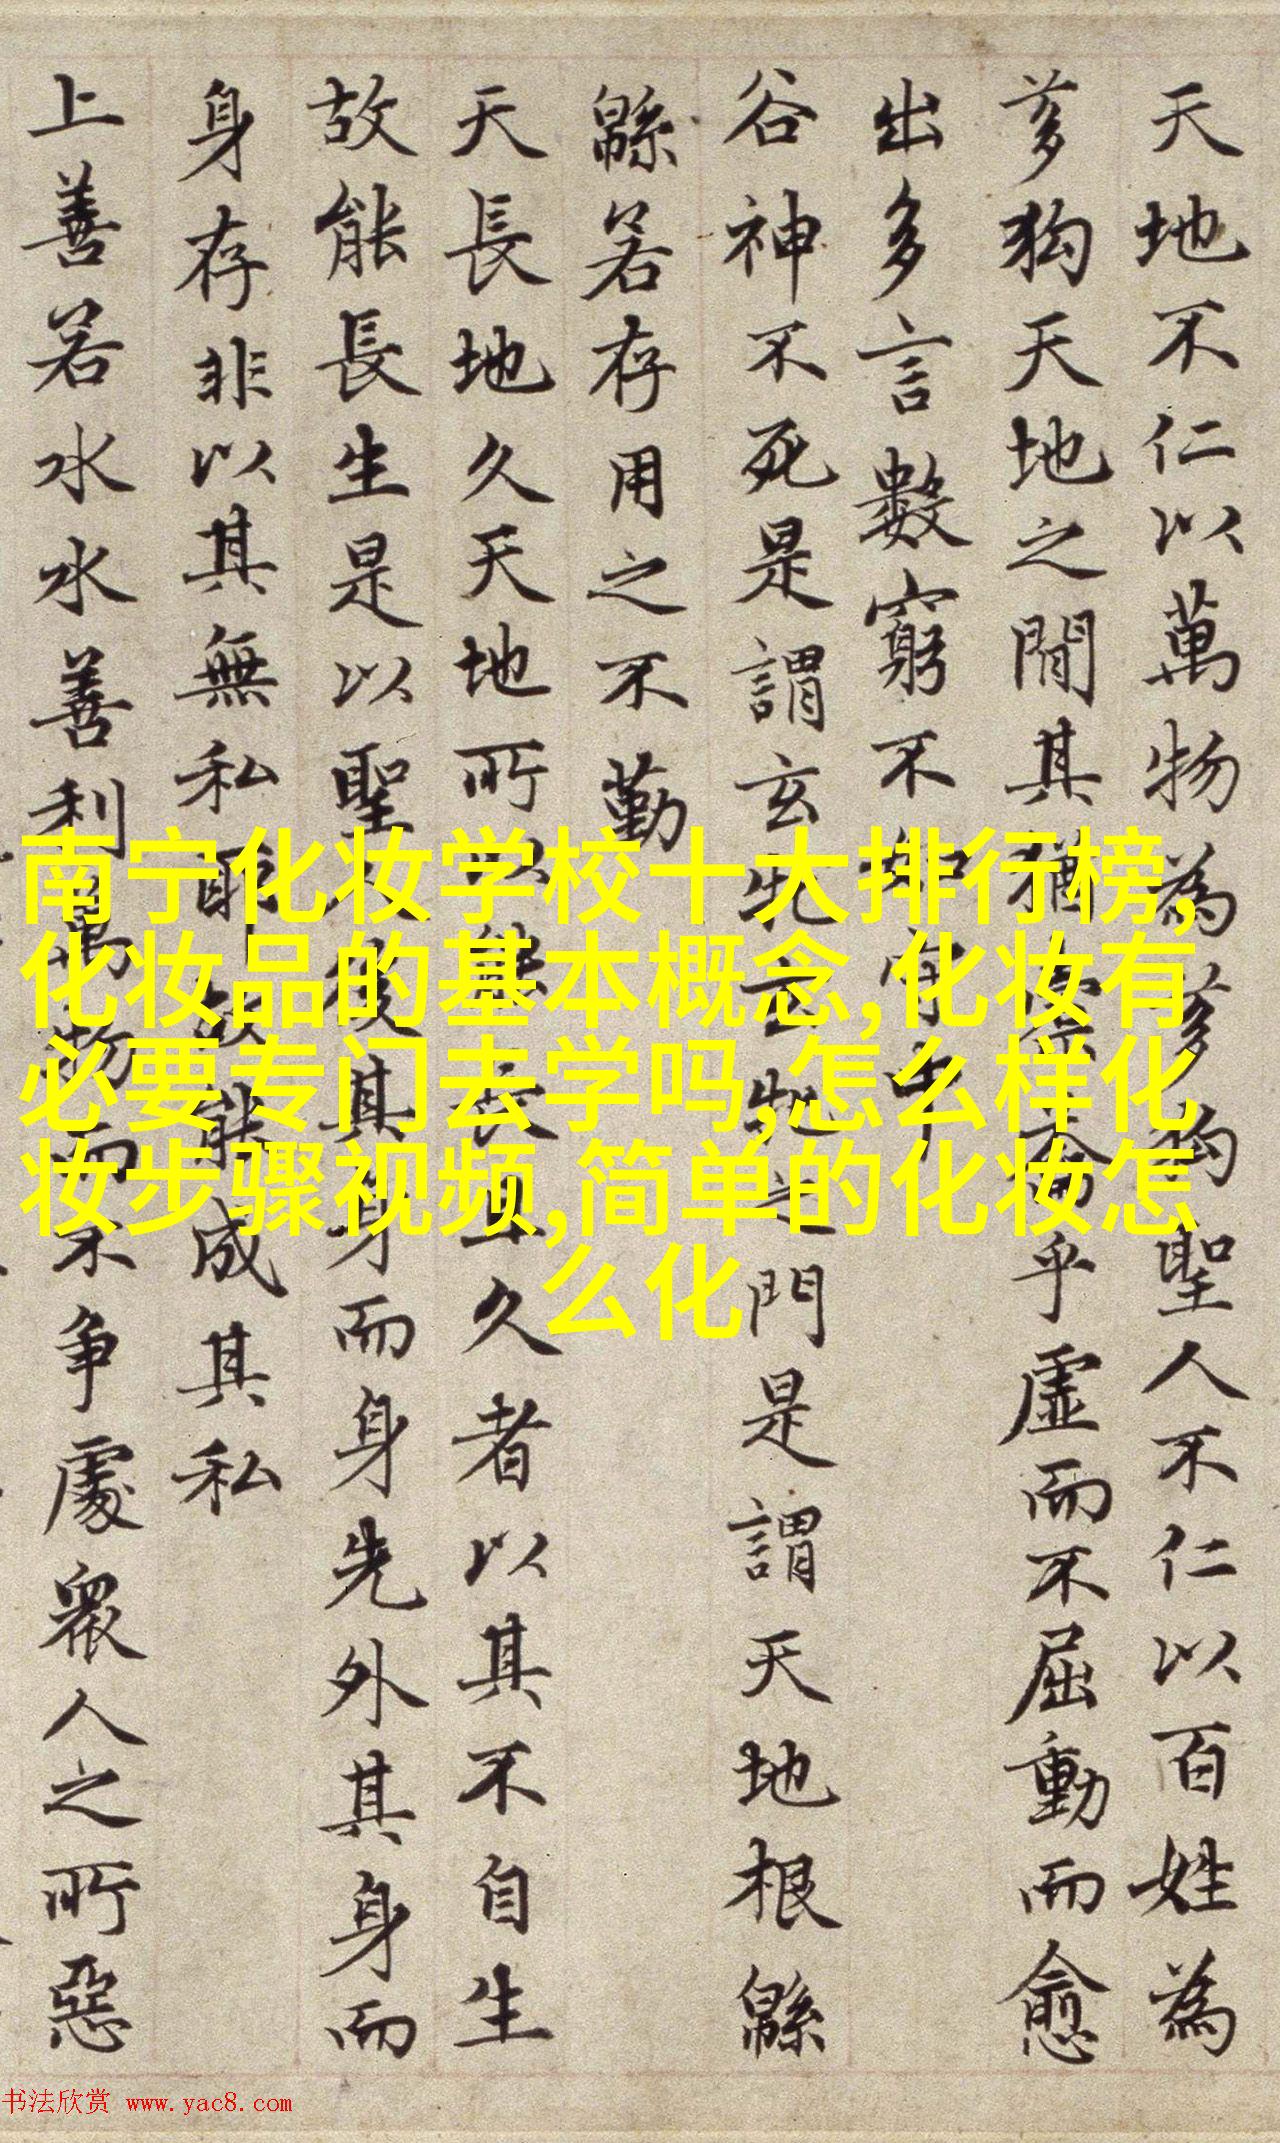 天地不仁以萬物為芻狗聖人不仁以百姓為
芻狗天地之間其猶橐籥乎虛而不屈動而愈
出多言數窮不如守中
谷神不死是謂玄牝玄牝之門是謂天地根緜
緜若存用之不勤
天長地久天地所以能長且久者以其不自生
故能長生是以聖人後其身而身先外其身而
身存非以其無私耶故能成其私
上善若水水善利萬物而不争處衆人之所惡
南宁化妆学校十大排行榜,
化妆品的基本概念,化妆有
必要专门去学吗,怎么样化
妆步骤视频,简单的化妆怎
么化
书法欣赏 www.yac8.com